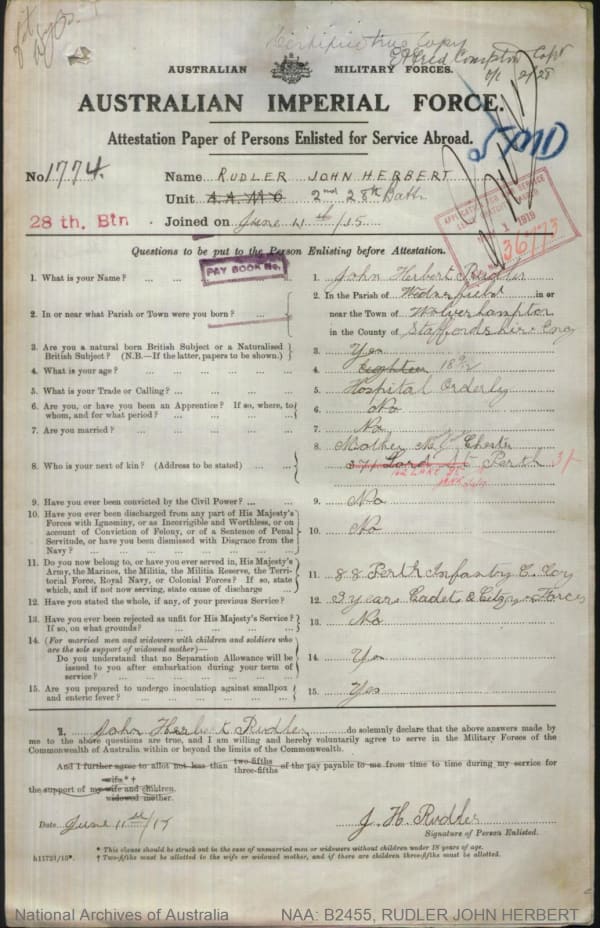 Certified true copy
Alfred Compton Capt
AUSTRALIAN MILITARY FORCES.
AUSTRALIAN IMPERIAL FORCE.
Attestation Paper of Persons Enlisted for Service Abroad.
No. 1774. Name RUDLER JOHN HERBERT
Unit A.A.M.C 2nd 28th Battn
28 th. Btn. Joined on June 11th/15
1919
36773
Questions to be put to the Person Enlisting before Attestation.
PAY BOOK No.
1. What is your Name? ... 1. John Herbert Rudler
2. In or near what Parish or Town were you born? ... 2. In the Parish of Wednesfield in or
near the Town of Wolverhampton
in the County of Staffordshire Eng
3. Are you a natural born British Subject or a Naturalised
British Subject? (N.B.—If the latter, papers to be shown.) 3. Yes
4. What is your age? ... 4. Eighteen 18
5. What is your Trade or Calling? ... 5. Hospital Orderly
6. Are you, or have you been an Apprentice? If so, where, to
whom, and for what period? ... 6. No
7. Are you married? ... 7. No
8. Who is your next of kin? (Address to be stated) ... 8. Mother
Lord St Perth
9. Have you ever been convicted by the Civil Power? ... 9. No
10. Have you ever been discharged from any part of His Majesty's
Forces with Ignominy, or as Incorrigible and Worthless, or on
account of Conviction of Felony, or of a Sentence of Penal
Servitude, or have you been dismissed with Disgrace from the
Navy? ... 10. No
11. Do you now belong to, or have you ever served in, His Majesty's
Army, the Marines, the Militia, the Militia Reserve, the Terri-
torial Force, Royal Navy, or Colonial Forces? If so, state
which, and if not now serving, state cause of discharge 11. 88 Perth Infantry C. Coy
12. Have you stated the whole, if any, of your previous Service? 12. 3 years Cadets & Citzn Forces
13. Have you ever been rejected as unfit for His Majesty's Service?
If so, on what grounds? ... 13. No
14. (For married men and widowers with children and soldiers who
are the sole support of widowed mother)—
Do you understand that no Separation Allowance will be
issued to you after embarkation during your term of
service? ... 14. Yes
15. Are you prepared to undergo inoculation against smallpox
and enteric fever? ... 15. Yes
I, John Herbert Rudler do solemnly declare that the above answers made by
me to the above questions are true, and I am willing and hereby voluntarily agree to serve in the Military Forces of the
Commonwealth of Australia within or beyond the limits of the Commonwealth.
And I further agree to allot not less than two-fifths
three-fifths of the pay payable to me from time to time during my service for
wife*†
the support of my wife and children.
widowed mother.
Date June 11th/15 J. H. Rudler
Signature of Person Enlisted.
* This clause should be struck out in the case of unmarried men or widowers without children under 18 years of age.
h11721/15*. † Two-fifths must be allotted to the wife or widowed mother, and if there are children three-fifths must be allotted.
National Archives of Australia NAA: B2455, RUDLER JOHN HERBERT